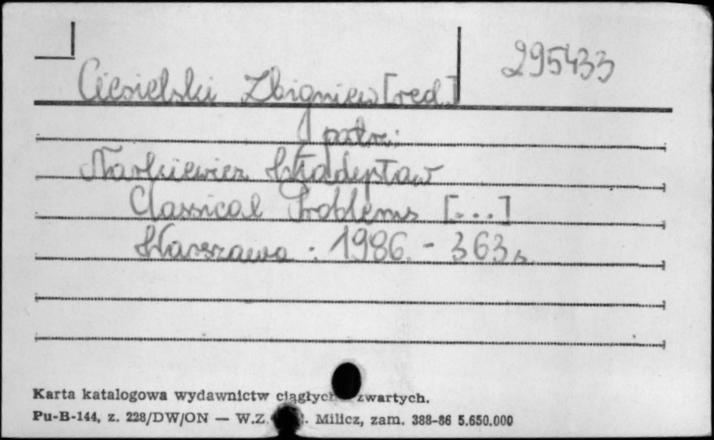 295433
Ciesielski Zbigniew [red.]
patrz:
Narkiewicz Władysław
Classical Problems [...]
Warszawa : 1986. - 363 s.
Karta katalogowa wydawnictw ciągłych zwartych.
Pu-B-144, z. 228/DW/ON — W.Z. Milicz, zam. 388-86 5.650.000